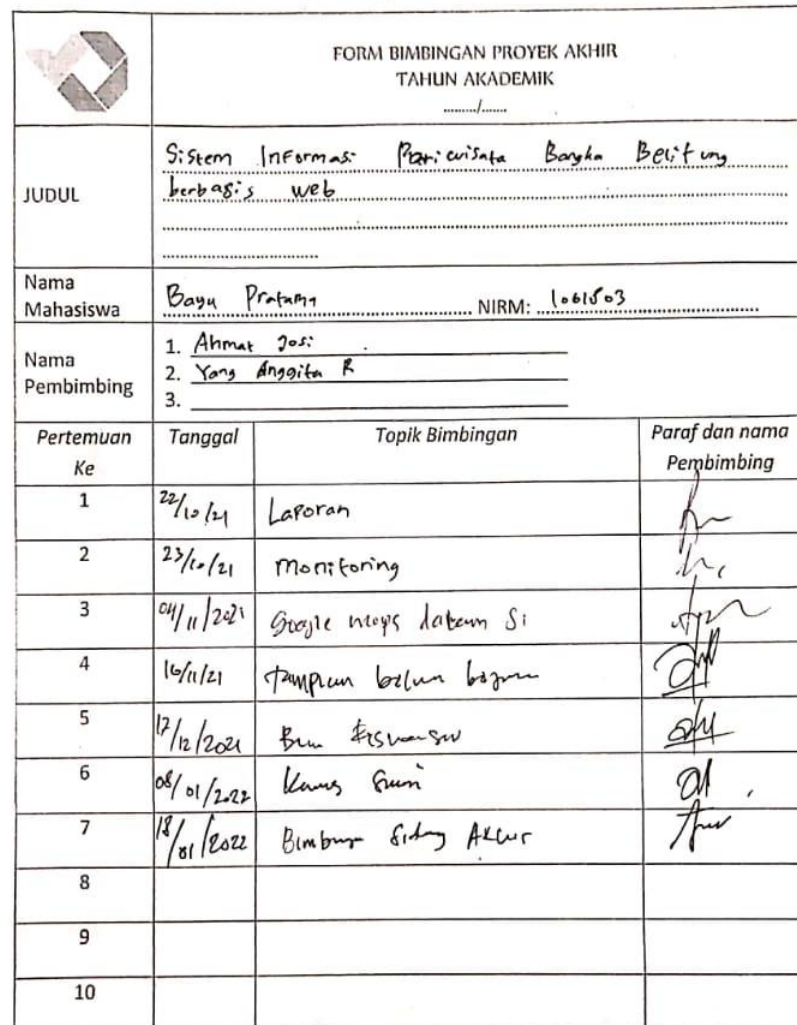 FORM BIMBINGAN PROYEK AKHIR
TAHUN AKADEMIK
........./.......
JUDUL
Sistem Informasi Pariwisata Bangka Belitung
berbagis web
Nama Mahasiswa
Bayu Pratama NIRM: 1061503
Nama Pembimbing
1. Ahmat Josi
2. Yang Anggita R
3.
Pertemuan Ke Tanggal Topik Bimbingan Paraf dan nama Pembimbing
1 22/10/21 Laporan
2 23/10/21 Monitoring
3 04/11/2021 Google maps dalam Si
4 16/11/21 belum
5 17/12/2021
6 08/01/2022
7 18/01/2022 Sidang Akhir
8
9
10